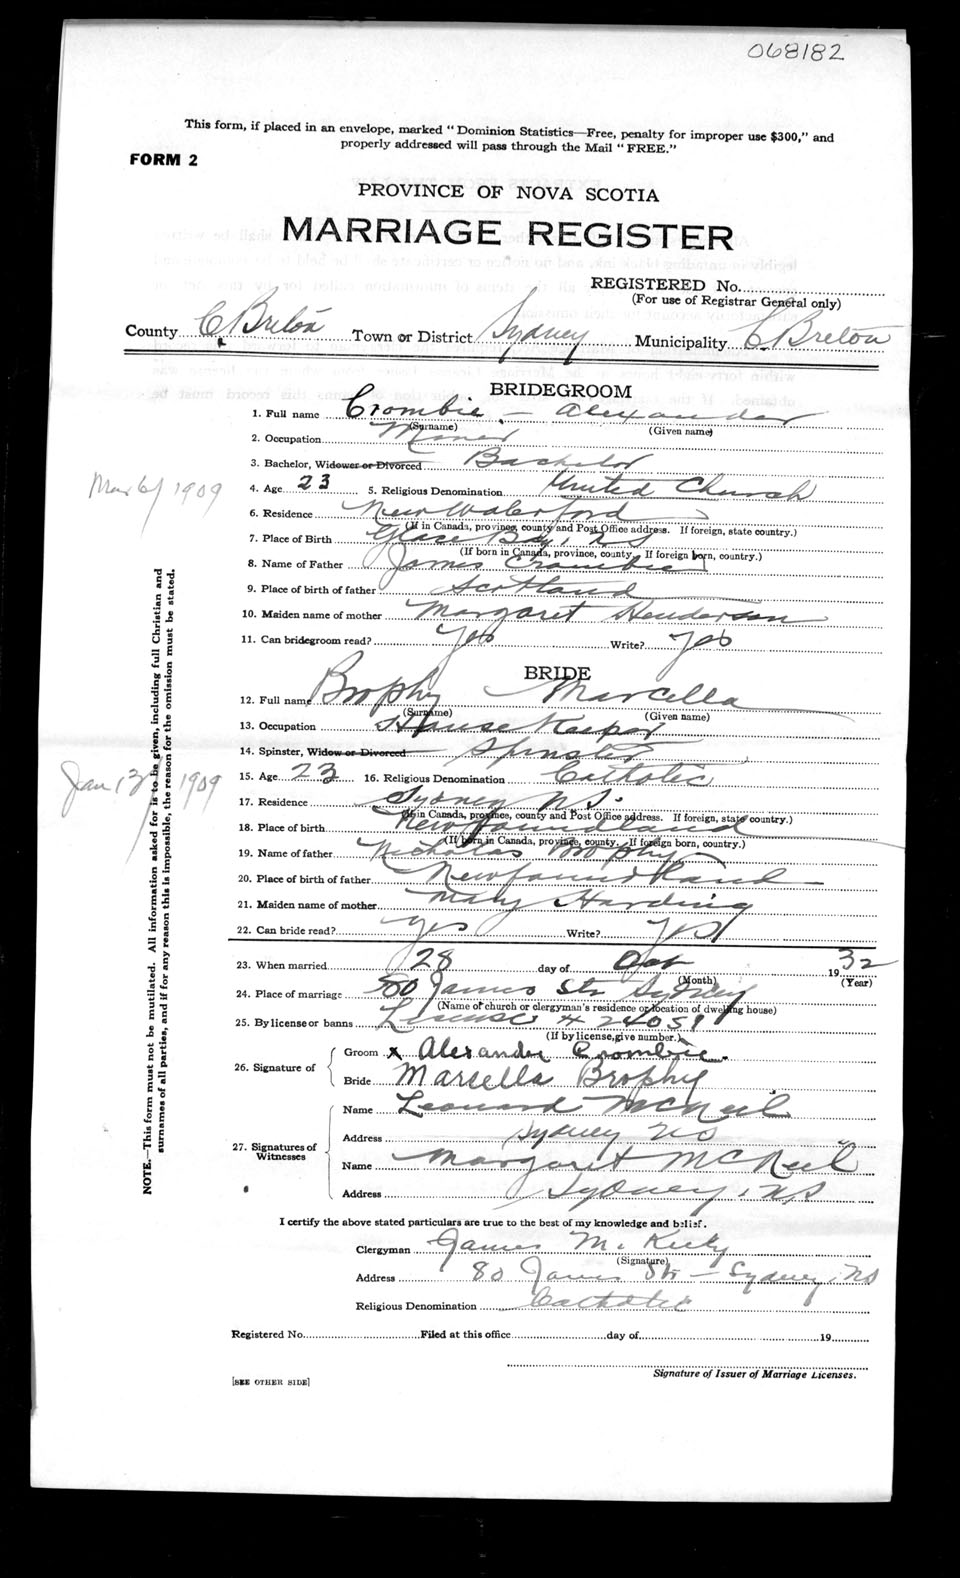 068182
This form, if placed in an envelope, marked "Dominion Statistics—Free, penalty for improper use $300," and
properly addressed will pass through the Mail "FREE."
FORM 2
PROVINCE OF NOVA SCOTIA
MARRIAGE REGISTER
REGISTERED No.
(For use of Registrar General only)
County C Breton Town or District Sydney Municipality C. Breton
BRIDEGROOM
1. Full name Crombie - Alexander
(Surname) (Given name)
2. Occupation Miner
3. Bachelor, Widower or Divorced Bachelor
4. Age 23 5. Religious Denomination United Church
6. Residence New Waterford
(If in Canada, province, county and Post Office address. If foreign, state country.)
7. Place of Birth Glace Bay, N S
(If born in Canada, province, county. If foreign born, country.)
8. Name of Father James Crombie
9. Place of birth of father Scotland
10. Maiden name of mother Margaret Henderson
11. Can bridegroom read? Yes Write? Yes
BRIDE
12. Full name Brophy Marcella
(Surname) (Given name)
13. Occupation House Keeper
14. Spinster, Widow or Divorced Spinster
15. Age 23 16. Religious Denomination Catholic
17. Residence Sydney N S.
(If in Canada, province, county and Post Office address. If foreign, state country.)
18. Place of birth Newfoundland
(If born in Canada, province, county. If foreign born, country.)
19. Name of father Nicholas Brophy
20. Place of birth of father Newfoundland
21. Maiden name of mother Mary Harding
22. Can bride read? Yes Write? Yes
23. When married 28 day of Oct 1932
(Month) (Year)
24. Place of marriage 80 James Str Sydney
(Name of church or clergyman's residence or location of dwelling house)
25. By license or banns License # 24051
(If by license, give number.)
26. Signature of
Groom x Alexander Crombie.
Bride Marsella Brophy
27. Signatures of Witnesses
Name Leonard McNeil
Address Sydney NS
Name Margaret McNeil
Address Sydney, NS
I certify the above stated particulars are true to the best of my knowledge and belief.
Clergyman James M. Kiely
(Signature)
Address 80 James Str - Sydney, NS
Religious Denomination Catholic
Registered No. Filed at this office day of 19
Signature of Issuer of Marriage Licenses.
[SEE OTHER SIDE]
Mar 6/1909
Jan 13/1909
NOTE.—This form must not be mutilated. All information asked for is to be given, including full Christian and
surnames of all parties, and if for any reason this is impossible, the reason for the omission must be stated.